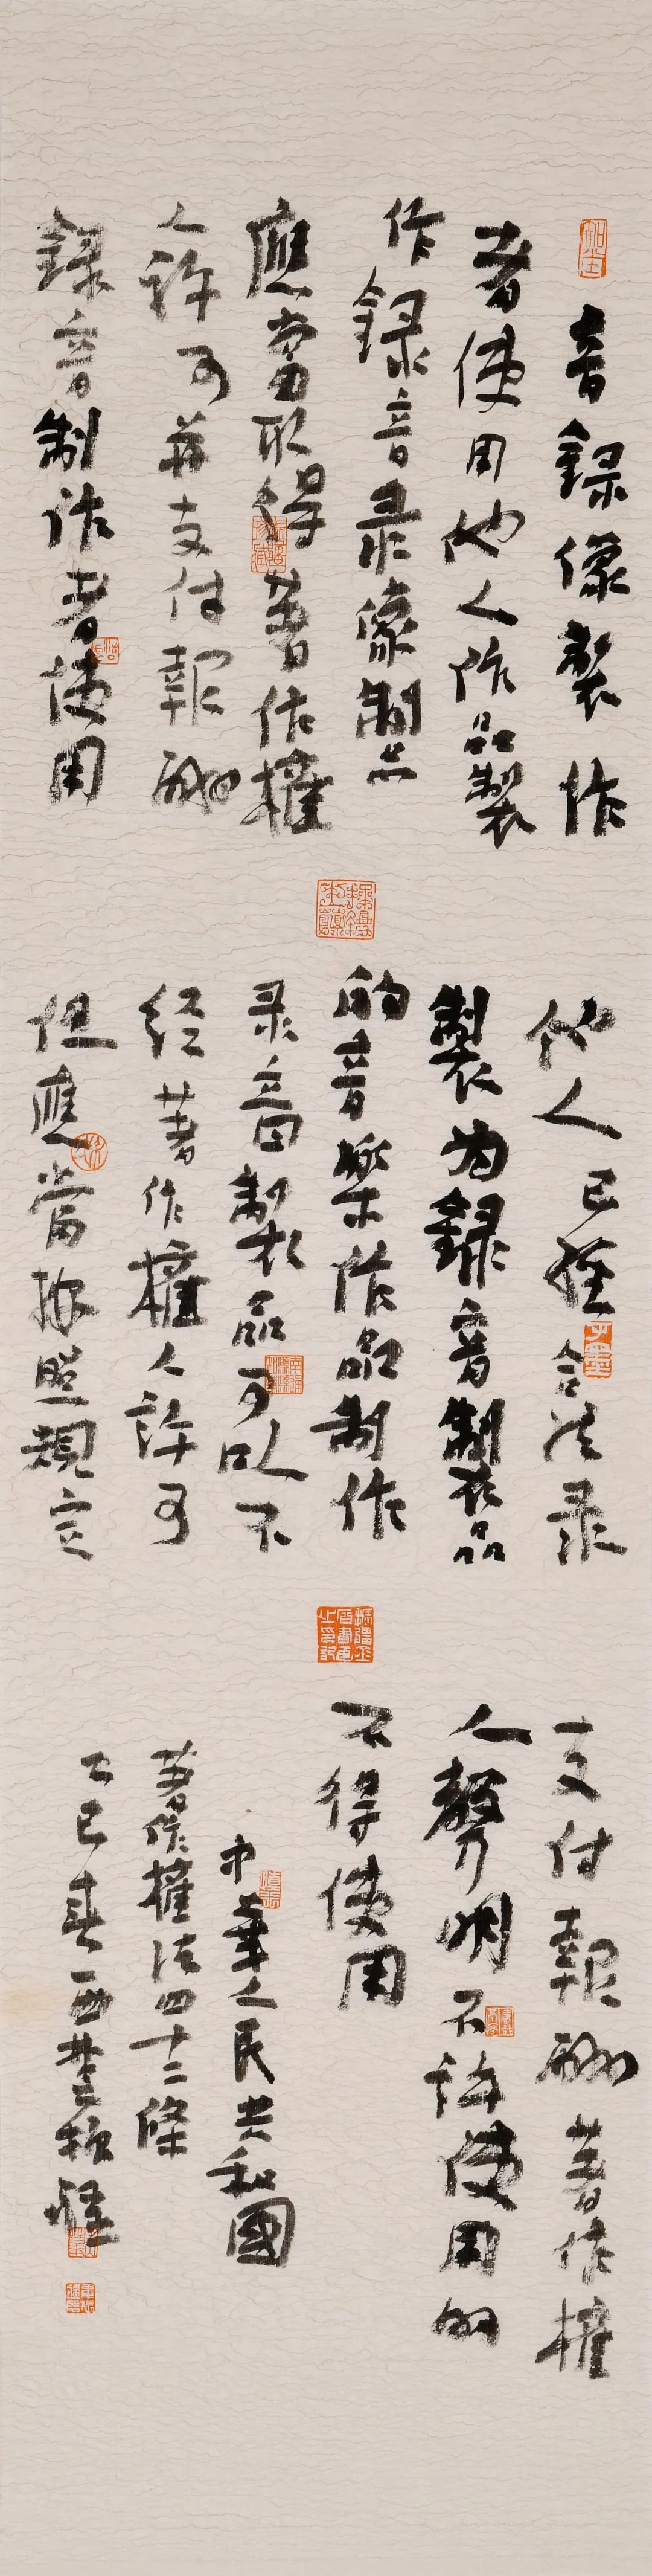 音録像製作
者使用他人作品製
作録音录像製品
應當取得著作權
人許可并支付報酬
録音制作者使用
他人已經合法录
製为録音製品
的音樂作品制作
录音製品可以不
经著作權人許可
但應當按照規定
支付報酬著作權
人聲明不許使用的
不得使用
中華人民共和國
著作權法四十二條
乙巳春西楚振
子墨